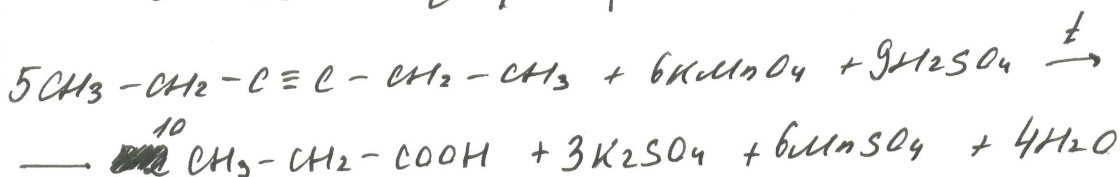 5CH3 - CH2 - C ≡ C - CH2 - CH3 + 6KMnO4 + 9H2SO4 t→
→ 10 CH3 - CH2 - COOH + 3K2SO4 + 6MnSO4 + 4H2O